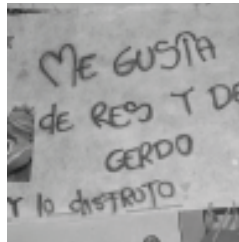 ME GUSTA
de RES Y DE
GERDO
Y lo disFRUTO